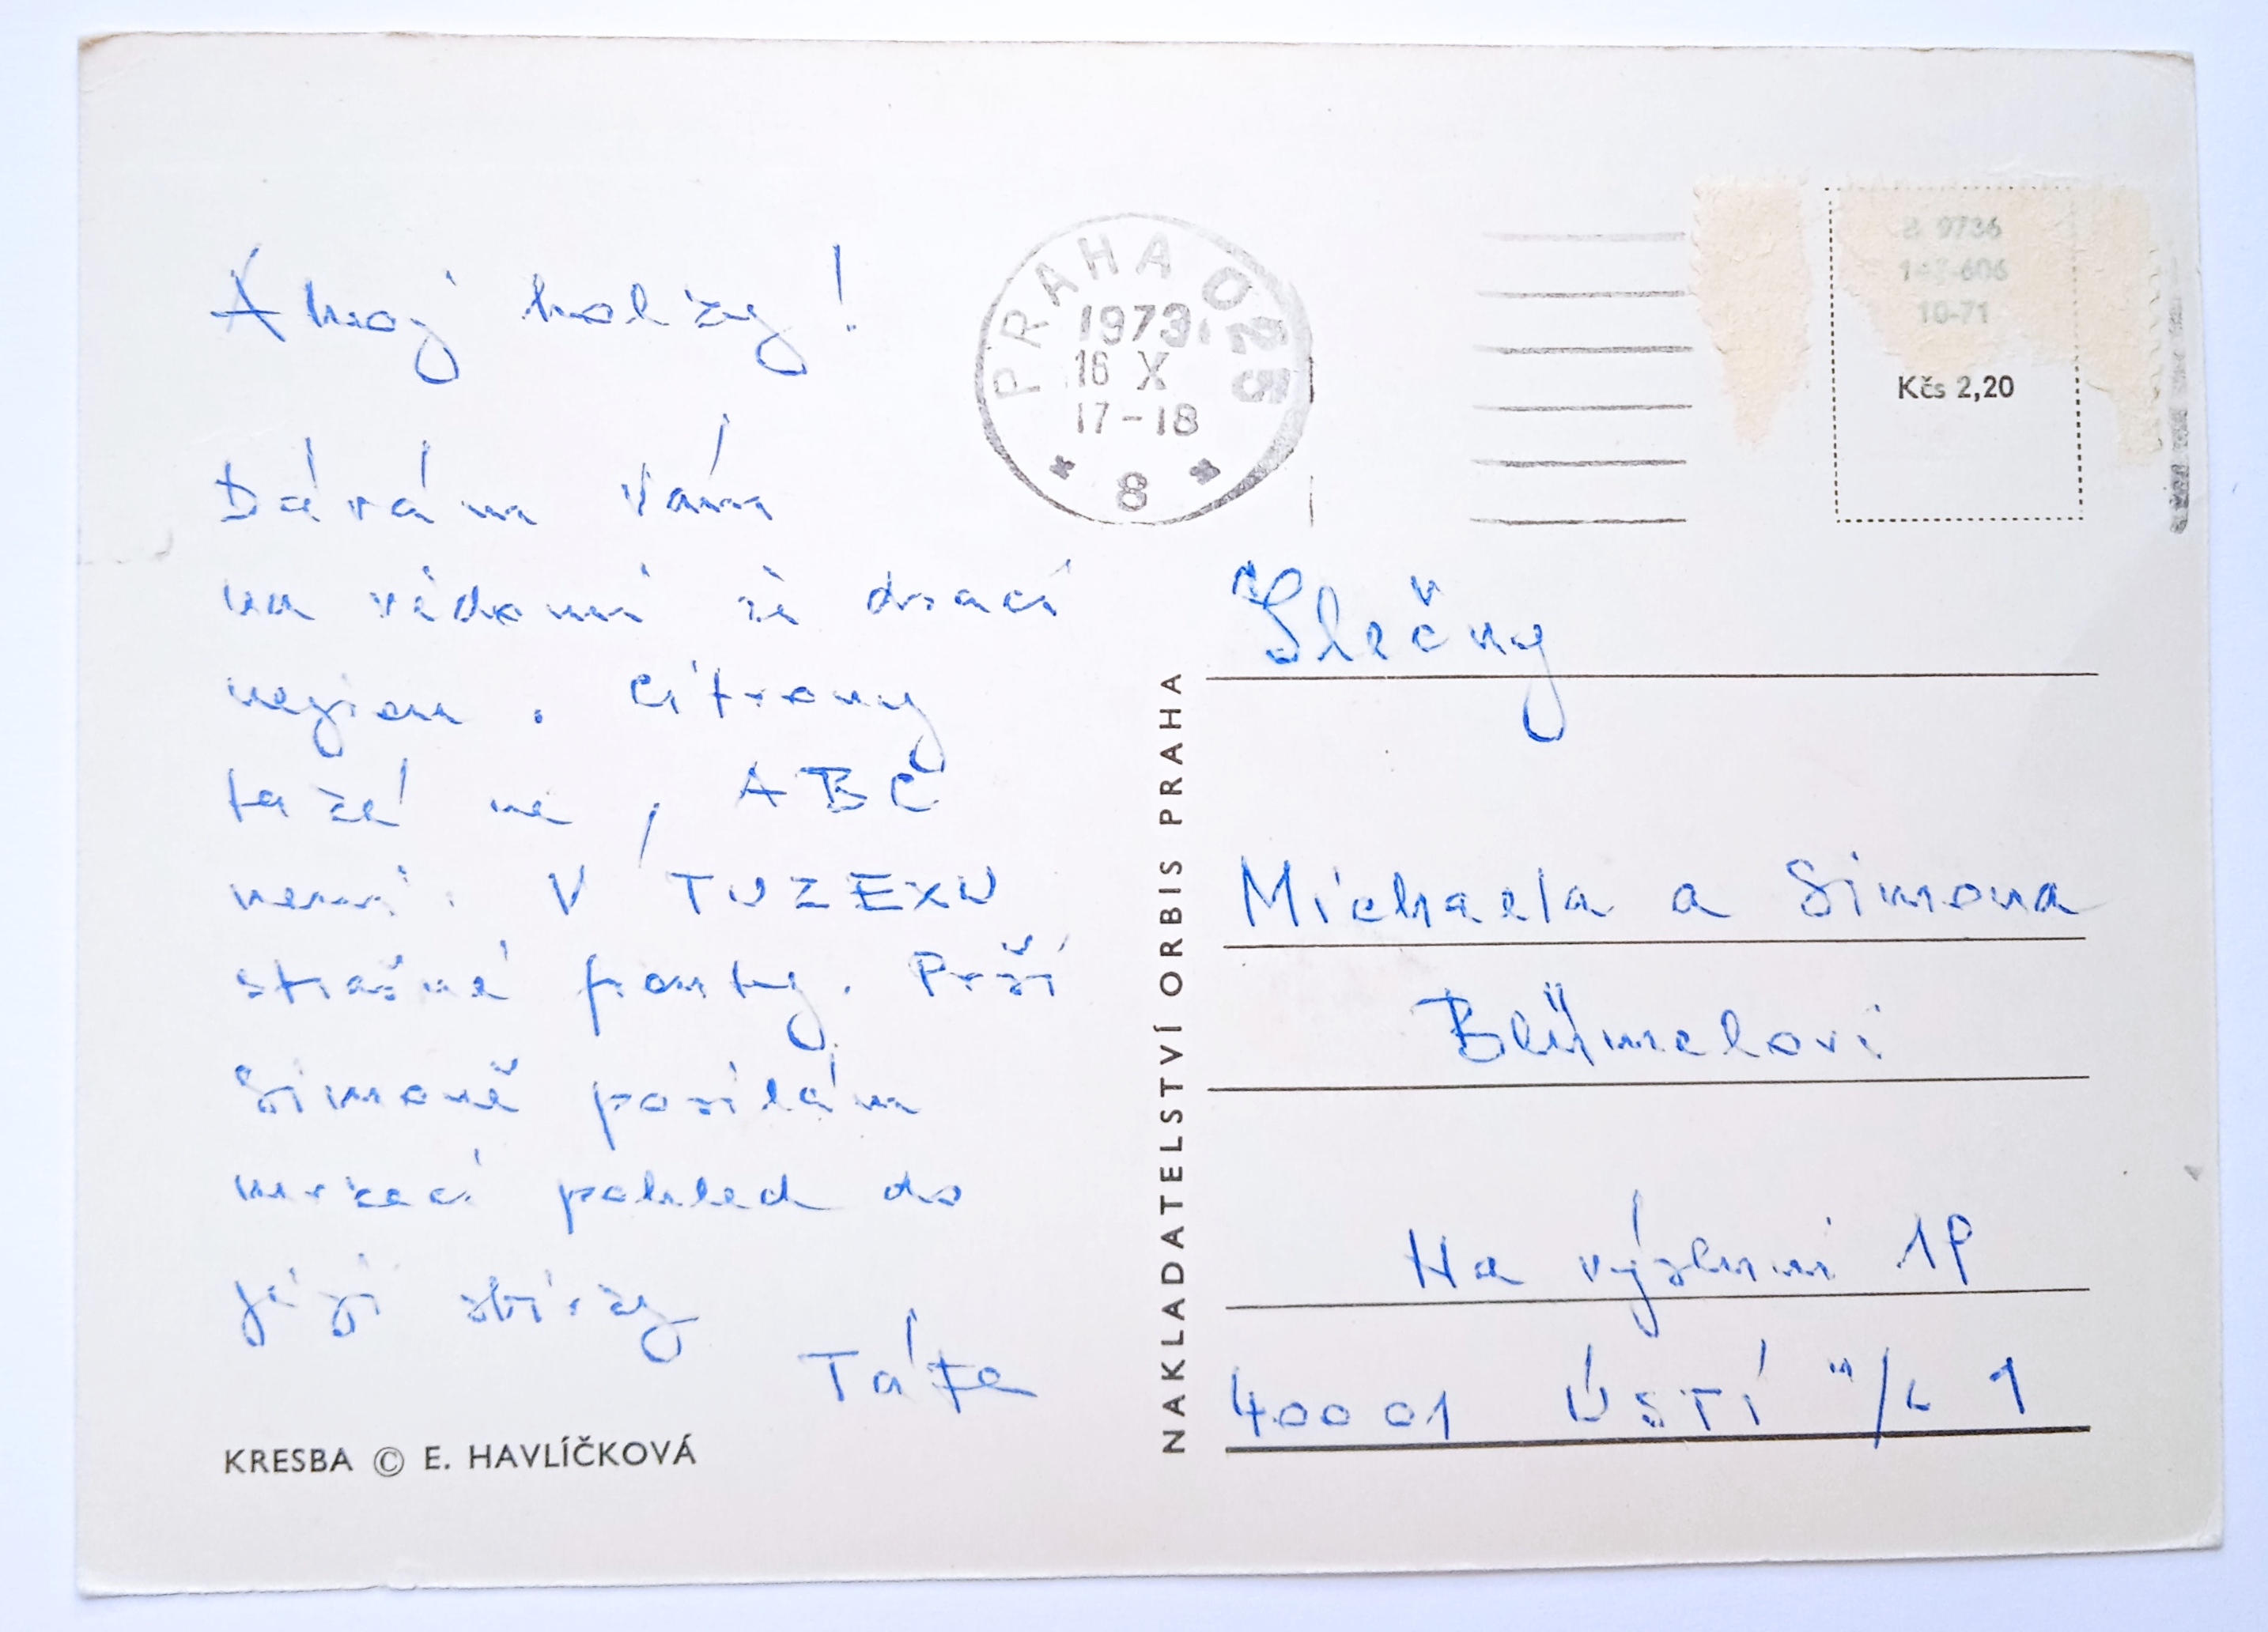 Ahoj holky!
Dávám Vám
na vědomí že draci
nejsou. Citrony
také ne, ABC
není. V TUZEXU
strašné fronty. Prší
Simoně posílám
mrkací pohled do
její sbírky
Táta
KRESBA © E. HAVLÍČKOVÁ
PRAHA 025
1973
16 X
17-18
* 8 *
9736
606
10-71
Kčs 2,20
NAKLADATELSTVÍ ORBIS PRAHA
Slečny
Michaela a Simona
Blümelovi
Na výsluní
40001 ÚSTÍ n/L 1